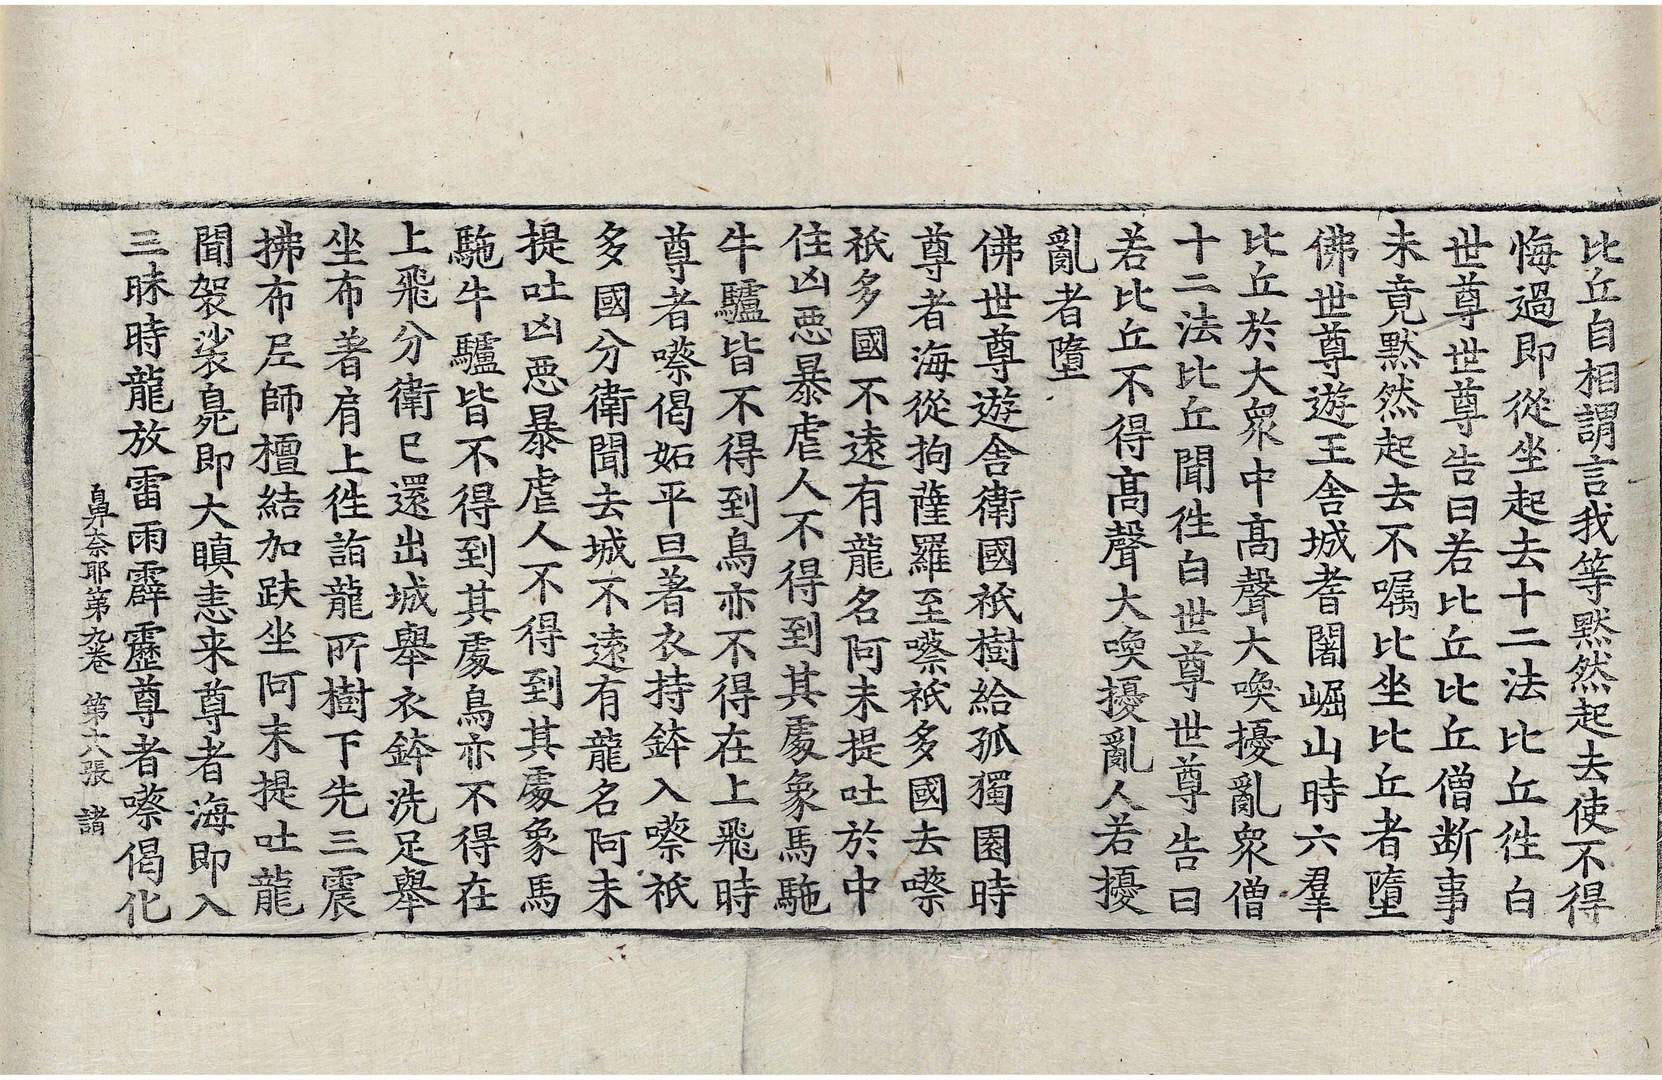 比丘自相謂言我等黙然起去使不得
悔過即從坐起去十二法比丘徃白
世尊世尊告曰若比丘比丘僧断事
未竟黙然起去不嘱比坐比丘者墮
佛世尊遊王舍城耆闍崛山時六羣
比丘於大衆中髙聲大喚擾亂衆僧
十二法比丘聞徃白世尊世尊告曰
若比丘不得髙聲大喚擾亂人若擾
亂者墮
佛世尊遊舍衛國祇樹給孤獨園時
尊者海從拘薩羅至㘉祇多國去㘉
祇多國不遠有龍名阿末提吐於中
住凶惡暴虐人不得到其處象馬駞
牛驢皆不得到鳥亦不得在上飛時
尊者㘉偈妬平旦著衣持鉢入㘉祇
多國分衛聞去城不遠有龍名阿末
提吐凶惡暴虐人不得到其處象馬
駞牛驢皆不得到其處鳥亦不得在
上飛分衛已還出城舉衣鉢洗足舉
坐布著肩上徃詣龍所樹下先三震
拂布尼師檀結加趺坐阿末提吐龍
聞袈裟臭即大瞋恚来尊者海即入
三昧時龍放雷雨霹靂尊者㘉偈化
鼻奈耶第九卷 第六張 諸